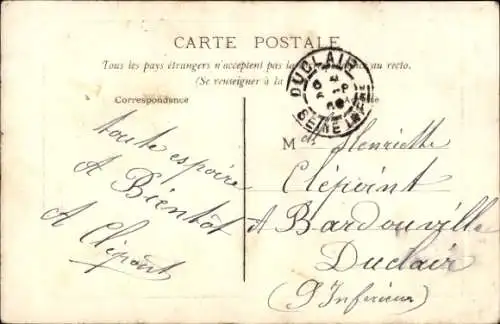 CARTE POSTALE
Tous les pays étrangers n'acceptent pas la au recto.
(Se renseigner à la
Correspondance
DUCLAIR
SEINE INFRE
toute espoire
A Bientôt
A Clépoint
M elle Henriette
Clépoint
A Bardouville
Duclair
(S Inférieure)